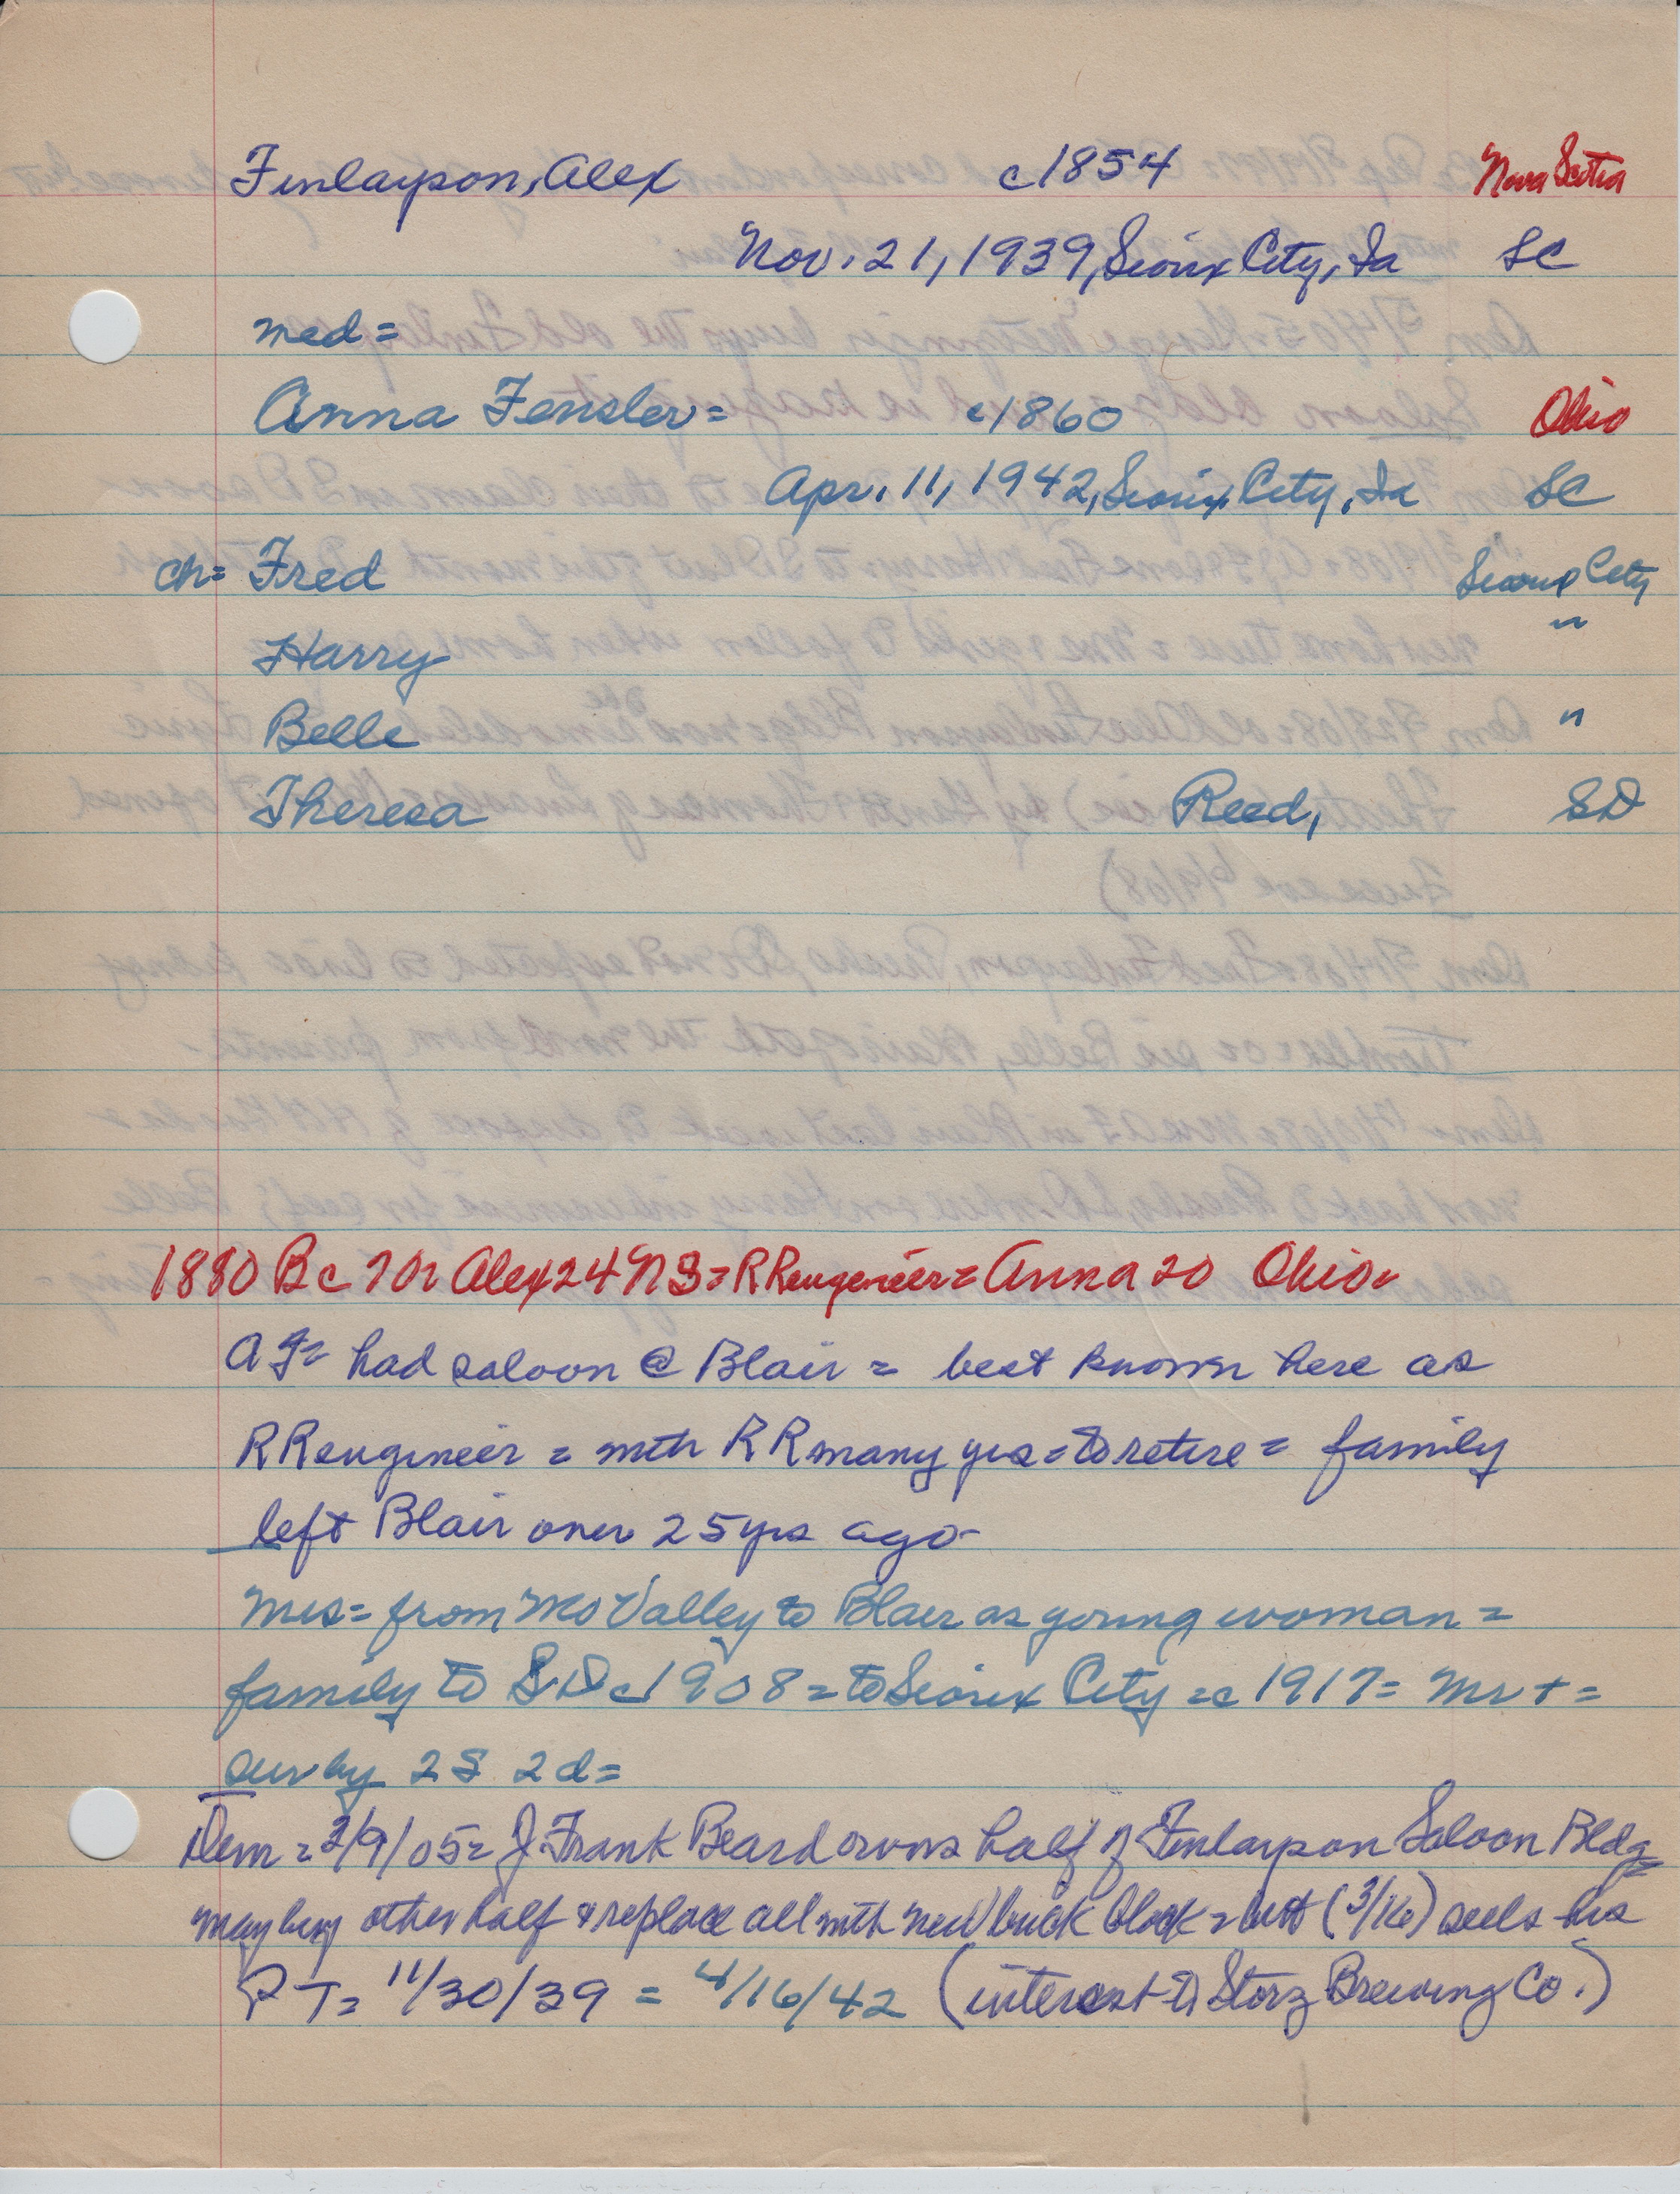 Finlayson, Alex c1854 Nova Scotia
Nov. 21, 1939, Sioux City, Ia SC
med=
Anna Fensler= c1860 Ohio
Apr. 11, 1942, Sioux City, Ia SC
ch= Fred Sioux City
Harry "
Belle "
Theresa Reed, SD
1880 Bc 70= Alex 24 NS= RR engineer= Anna 20 Ohio=
AF= had saloon @ Blair = best known here as
RR engineer = with RR many yrs = to retire = family
left Blair over 25 yrs ago-
Mrs= from Mo Valley to Blair as young woman =
family to SD c1908 = to Sioux City =c 1917= Mr + =
sur by 2S 2d=
Dem = 3/9/05= J Frank Beard owns half of Finlayson Saloon Bldg=
may buy other half & replace all with new brick block = but (3/16) sells his
PT= 11/30/39 = 4/16/42 (interest to Storz Brewing Co.)